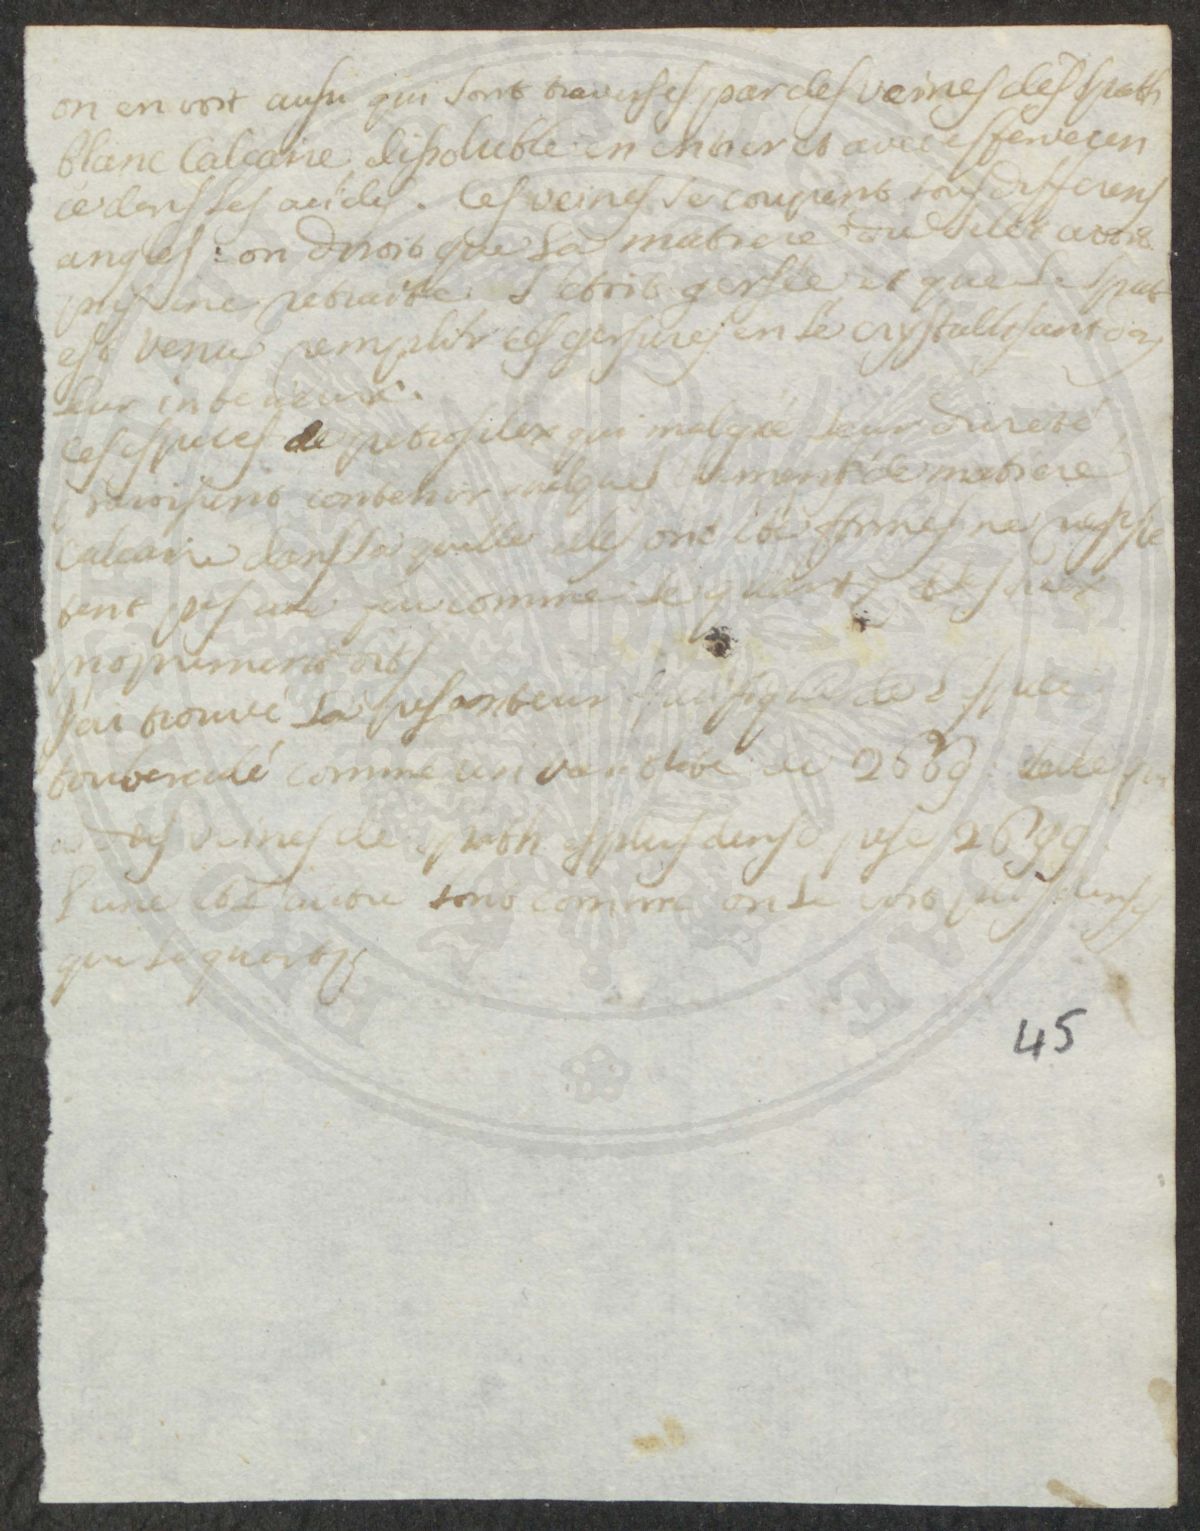 on en voit aussi qui sont traversés par des veines de spath
blanc Calcaire dissoluble en entier et avec effervescen
ce dans les acides. Ces veines se coupent sous differens
angles : on diroit que la matiere du silex avoit
pris une retraite s'étoit gersée et que le spat
est venu remplir ces gersures en se crystallisant dans
leur interieur.
Ces especes de petrosilex qui malgré leur dureté
paroissent contenir quelques elemens de matiere
Calcaire dans laquelle elles ont été formes ne resis
tent pas au feu comme le quartz et les silex
proprement dits
J'ai trouvé la pesanteur specifique de l'espece
tuberculé comme un de 2669. celle qui
a des veines de spath est plus dense pese 2699.
l'une et l'autre sont comme on le voit plus denses
que le quartz
45